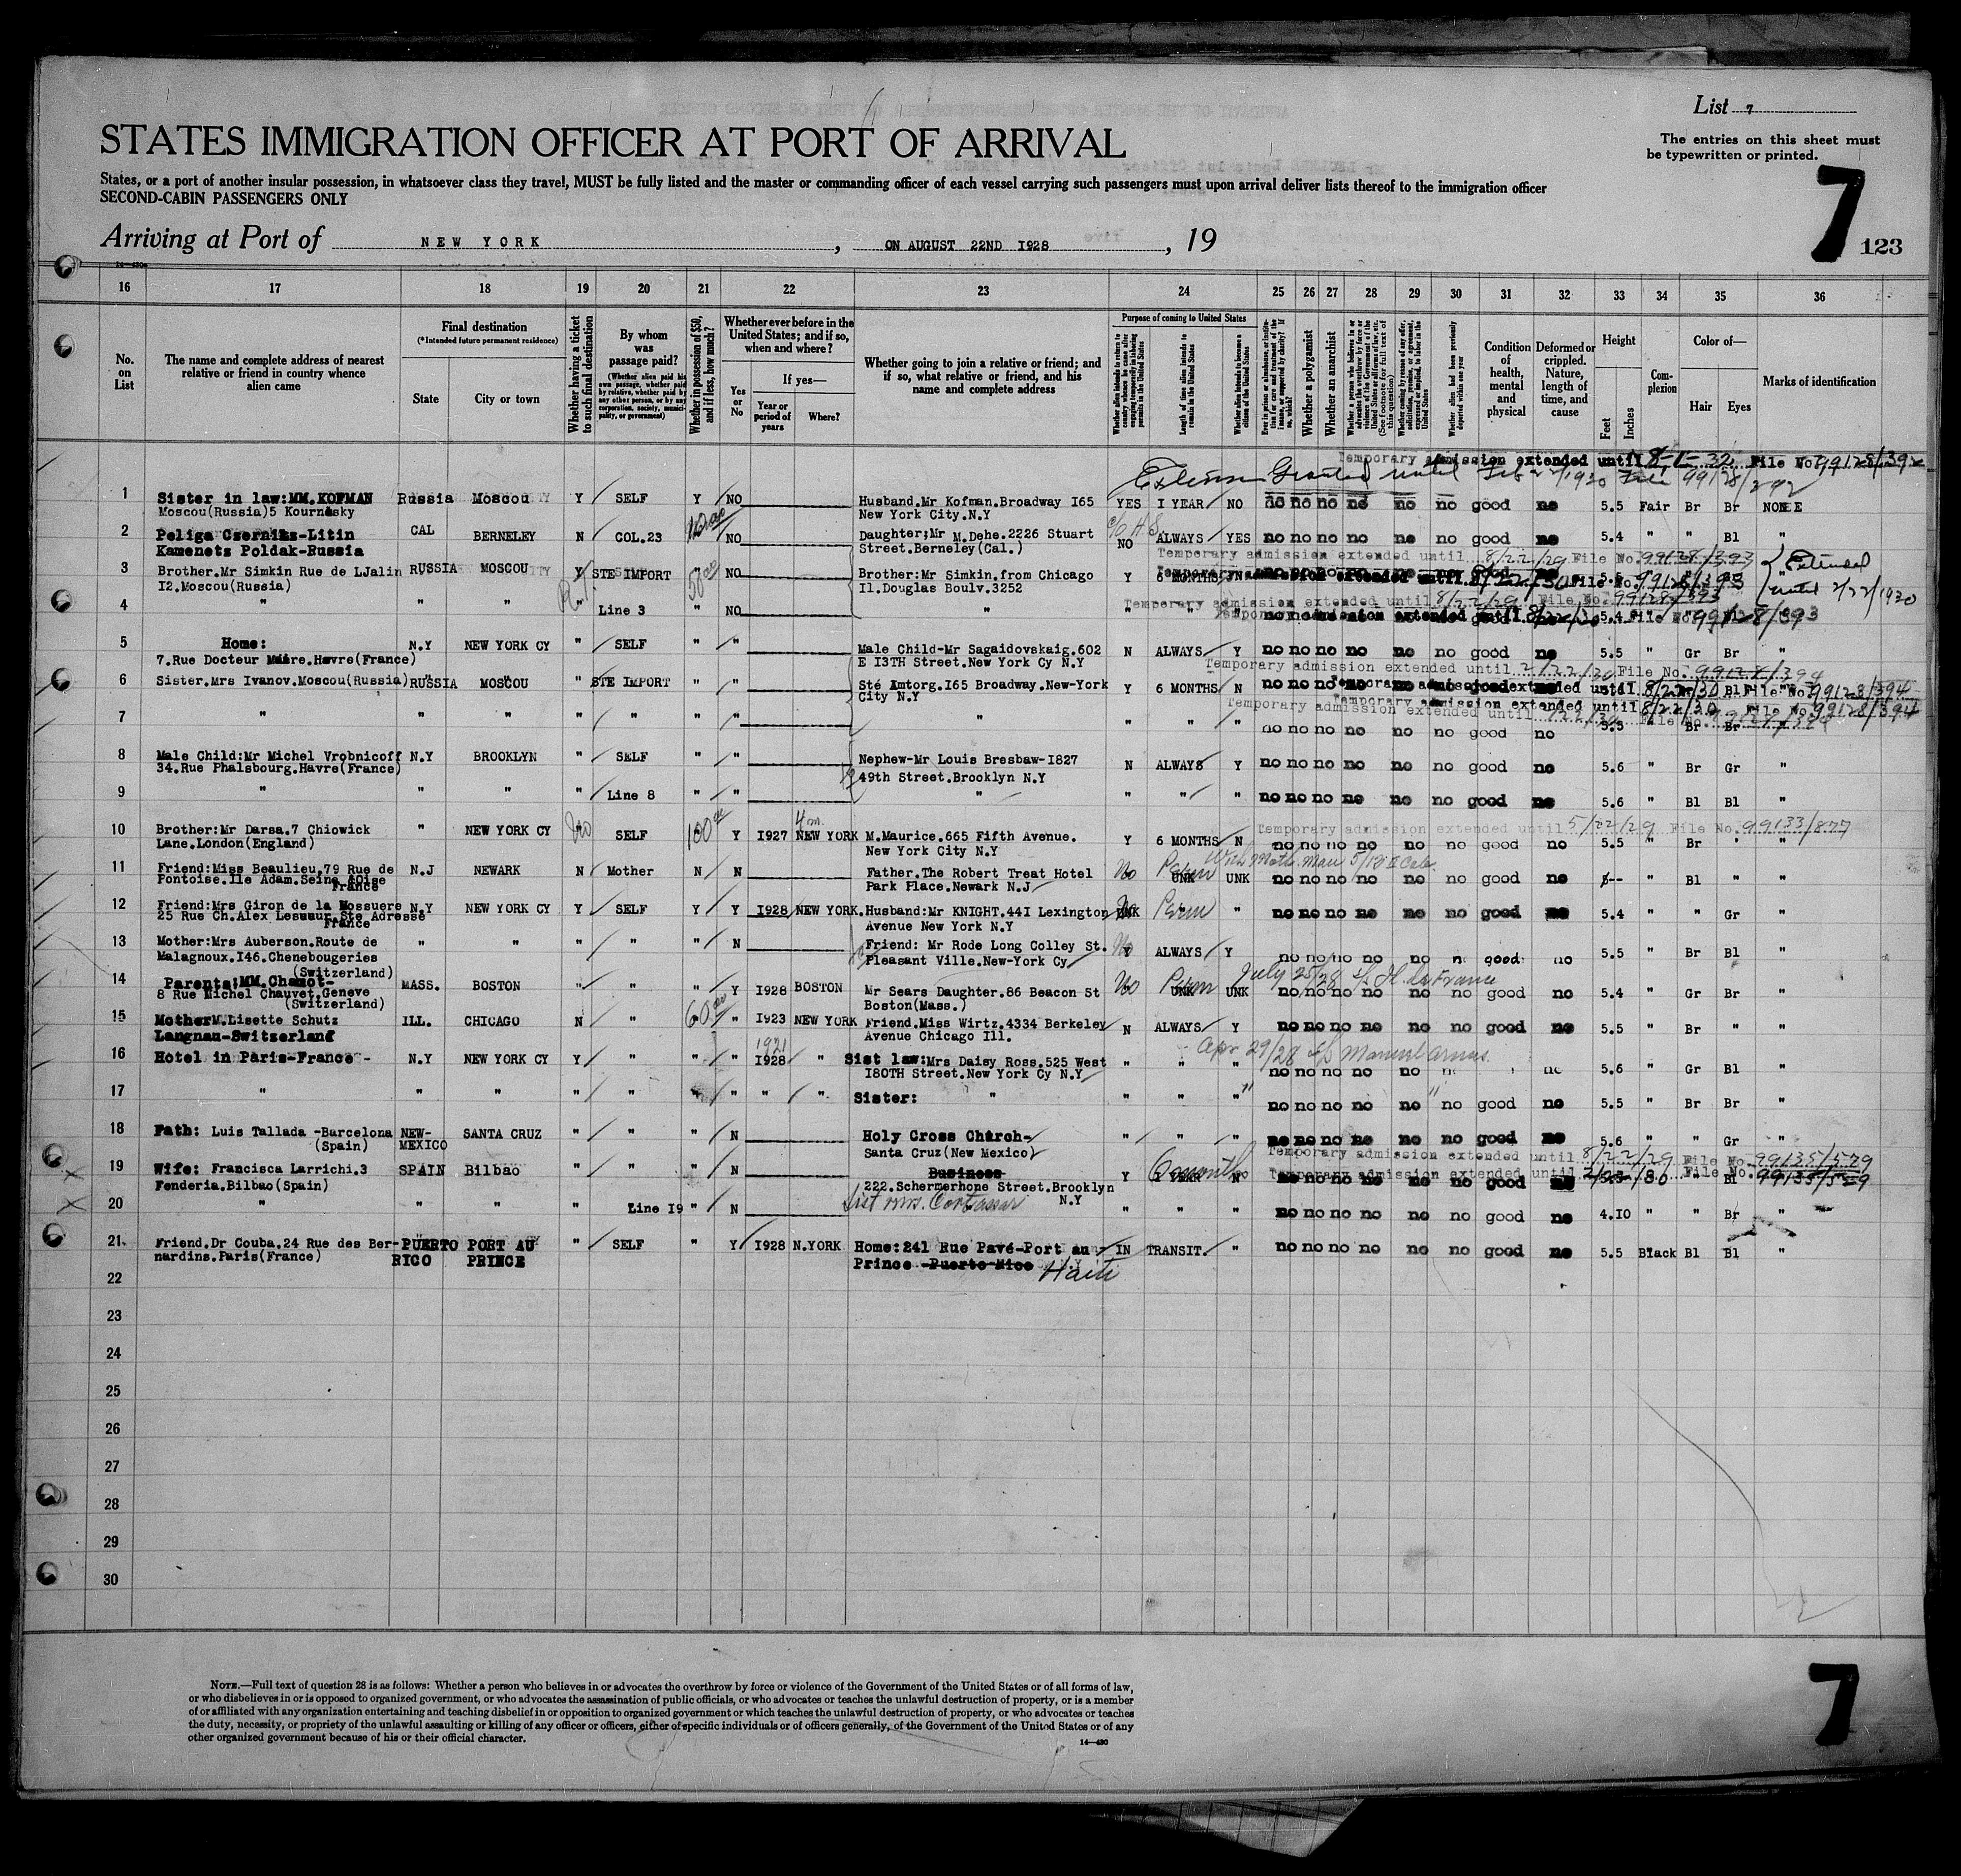 List 7
STATES IMMIGRATION OFFICER AT PORT OF ARRIVAL
The entries on this sheet must
be typewritten or printed.
States, or a port of another insular possession, in whatsoever class they travel, MUST be fully listed and the master or commanding officer of each vessel carrying such passengers must upon arrival deliver lists thereof to the immigration officer
SECOND-CABIN PASSENGERS ONLY
7
123
Arriving at Port of NEW YORK, ON AUGUST 22ND I928, 19
14-430
16 17 18 19 20 21 22 23 24 25 26 27 28 29 30 31 32 33 34 35 36
No. on List
The name and complete address of nearest relative or friend in country whence alien came
Final destination
(*Intended future permanent residence)
State
City or town
Whether having a ticket to such final destination
By whom was passage paid?
(Whether alien paid his own passage, whether paid by relative, whether paid by any other person, or by any corporation, society, municipality, or government)
Whether in possession of $50, and if less, how much?
Whether ever before in the United States; and if so, when and where?
Yes or No
If yes—
Year or period of years
Where?
Whether going to join a relative or friend; and if so, what relative or friend, and his name and complete address
Purpose of coming to United States
Length of time alien intends to remain in the United States
Whether alien intends to become a citizen of the United States
Whether a polygamist
Whether an anarchist
Whether alien had been previously deported within one year
Condition of health, mental and physical
Deformed or crippled. Nature, length of time, and cause
Height
Feet
Inches
Complexion
Color of—
Hair
Eyes
Marks of identification
Temporary admission extended until 8-1-32 File No. 99128/392
Extension Granted until Feb 1930 File 99128/392
1 Sister in law:MM.KOFMAN Russia Moscou Y SELF Y NO Husband.Mr Kofman.Broadway I65 YES I YEAR NO no no no no no no good no 5.5 Fair Br Br NONE
Moscou(Russia)5 Kournasky New York City.N.Y
2 Peliga Czerniks-Litin CAL BERNELEY N COL.23 NO Daughter;Mr M.Dehe.2226 Stuart NO ALWAYS YES no no no no no no good no 5.4 " " Bl "
Kamenets Poldak-Russia Street.Berneley(Cal.)
Temporary admission extended until 8/22/29 File No. 99128/393
3 Brother.Mr Simkin Rue de LJalin RUSSIA MOSCOU Y STE IMPORT 50 NO Brother:Mr Simkin.from Chicago Y 6 MONTHS N
I2.Moscou(Russia) Il.Douglas Boulv.3252
Extended until 2/22/1930
Temporary admission extended until 8/22/29 File No. 99128/393
4 " " " " Line 3 " NO " " " "
Temporary admission extended until 8/22/30 File No. 99128/393
5 Home: N.Y NEW YORK CY " SELF " " Male Child-Mr Sagaidovskaig.602 N ALWAYS Y no no no no no no good no 5.5 " Gr Br "
7.Rue Docteur Maire.Havre(France) E I3TH Street.New York Cy N.Y
Temporary admission extended until 2/22/30 File No. 99128/394
6 Sister.Mrs Ivanov.Moscou(Russia) RUSSIA MOSCOU " STE IMPORT " " Sté Amtorg.I65 Broadway.New-York Y 6 MONTHS N
City N.Y
Temporary admission extended until 8/22/30 File No. 99128/394
Temporary admission extended until 8/22/30 File No. 99128/394
7 " " " " " " " " " " " no no no no no no good no 5.5 " Br Br "
8 Male Child:Mr Michel Vrobnicoff N.Y BROOKLYN " SELF " " Nephew-Mr Louis Bresbaw-I827 N ALWAYS Y no no no no no no good no 5.6 " Br Gr "
34.Rue Phalsbourg.Havre(France) 49th Street.Brooklyn N.Y
9 " " " " Line 8 " " " " " " no no no no no no good no 5.6 " Bl Bl "
10 Brother:Mr Darsa.7 Chiowick " NEW YORK CY no SELF 100 Y I927 4m. NEW YORK M.Maurice.665 Fifth Avenue. Y 6 MONTHS N no no no no no no good no 5.5 " Br " "
Lane.London(England) New York City N.Y
Temporary admission extended until 5/22/29 File No. 99133/877
11 Friend:Miss Beaulieu.79 Rue de N.J NEWARK N Mother N N Father.The Robert Treat Hotel No UNK UNK no no no no no no good no 5-- " Bl " "
Pontoise.Ile Adam.Seine &Oise Park Place.Newark N.J
France
12 Friend:Mrs Giron de la Mossuere N.Y NEW YORK CY Y SELF Y Y I928 NEW YORK. Husband:Mr KNIGHT.44I Lexington UNK Perm " no no no no no no good no 5.4 " " Gr "
25 Rue Ch.Alex Lesueur.Ste Adresse Avenue New York N.Y
France
13 Mother:Mrs Auberson.Route de " " " " " N Friend: Mr Rode Long Colley St. Y ALWAYS Y no no no no no good no 5.5 " Br Bl "
Malagnoux.I46.Chenebougeries Pleasant Ville.New-York Cy
(Switzerland)
14 Parents:MM.Chamot- MASS. BOSTON " " " Y I928 BOSTON Mr Sears Daughter.86 Beacon St No Perm UNK UNK no no no no no no good no 5.4 " Gr Br "
8 Rue Michel Chauvet.Geneve Boston(Mass.)
(Switzerland)
July 25/28
15 Mother M.Lisette Schutz ILL. CHICAGO N " 60 " I923 NEW YORK Friend.Miss Wirtz.4334 Berkeley N ALWAYS Y no no no no no no good no 5.5 " Br " "
Langnau-Switzerland Avenue Chicago Ill.
Apr 29/28
16 Hotel in Paris-France- N.Y NEW YORK CY Y " " " 1921 I928 " Sist law:Mrs Daisy Ross.525 West " " " no no no no no 5.6 " Gr Bl "
I80TH Street.New York Cy N.Y
17 " " " " " " " " Sister: " " " " no no no no no no good no 5.5 " Br Br "
18 Fath: Luis Tallada -Barcelona NEW- SANTA CRUZ " " " N Holy Cross Church- " " " no no no no no no good no 5.6 " " Gr "
(Spain) MEXICO Santa Cruz(New Mexico)
Temporary admission extended until 8/22/29 File No. 99135/579
19 Wife: Francisca Larrichi.3 SPAIN Bilbao " " " N Business Y 6 months N no no no no no no good
Fenderia.Bilbao(Spain) 222.Schermerhone Street.Brooklyn
N.Y
20 " " " " Line I9 " N " " " no no no no no no good no 4.10 " " Br "
21 Friend.Dr Couba.24 Rue des Ber- PUERTO PORT AU " SELF " Y I928 N.YORK Home:24I Rue Pavé-Port au IN TRANSIT. " no no no no no no good no 5.5 Black Bl Bl "
nardins.Paris(France) RICO PRINCE Prince -Puerto-Rico Haiti
22
23
24
25
26
27
28
29
30
NOTE.—Full text of question 28 is as follows: Whether a person who believes in or advocates the overthrow by force or violence of the Government of the United States or of all forms of law,
or who disbelieves in or is opposed to organized government, or who advocates the assassination of public officials, or who advocates or teaches the unlawful destruction of property, or is a member
of or affiliated with any organization entertaining and teaching disbelief in or opposition to organized government or which teaches the unlawful destruction of property, or who advocates or teaches
the duty, necessity, or propriety of the unlawful assaulting or killing of any officer or officers, either of specific individuals or of officers generally, of the Government of the United States or of any
other organized government because of his or their official character.
14-430
7